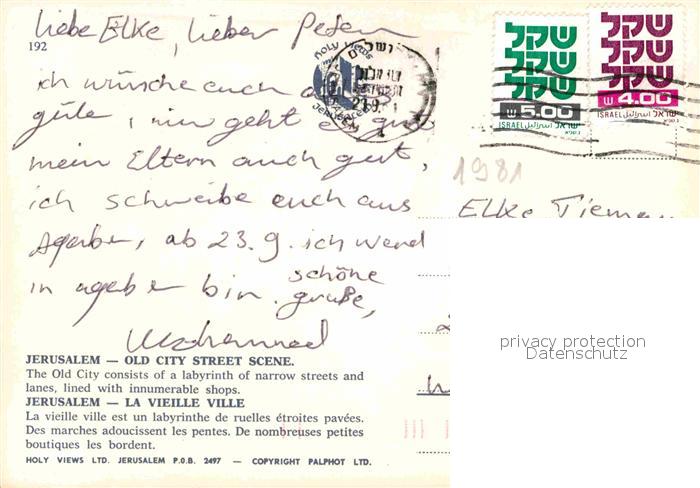 liebe Elke, lieber Peter
192
HOLY VIEWS
Jerusalem
ירושלים
21.9
שקל
שקל
שקל
ש 5.00
ISRAEL اسرائيل ישראל
שקל
שקל
שקל
ש 4.00
ISRAEL اسرائيل ישראל
ich wünsche euch
gute, mir geht es gut
mein Eltern auch gut,
ich schreibe euch aus
ab 23.9. ich werd
in bin. schöne
grüße,
Mohammed
1981
Elke Tieman
privacy protection
Datenschutz
JERUSALEM — OLD CITY STREET SCENE.
The Old City consists of a labyrinth of narrow streets and
lanes, lined with innumerable shops.
JERUSALEM — LA VIEILLE VILLE
La vieille ville est un labyrinthe de ruelles étroites pavées.
Des marches adoucissent les pentes. De nombreuses petites
boutiques les bordent.
HOLY VIEWS LTD. JERUSALEM P.O.B. 2497 — COPYRIGHT PALPHOT LTD.